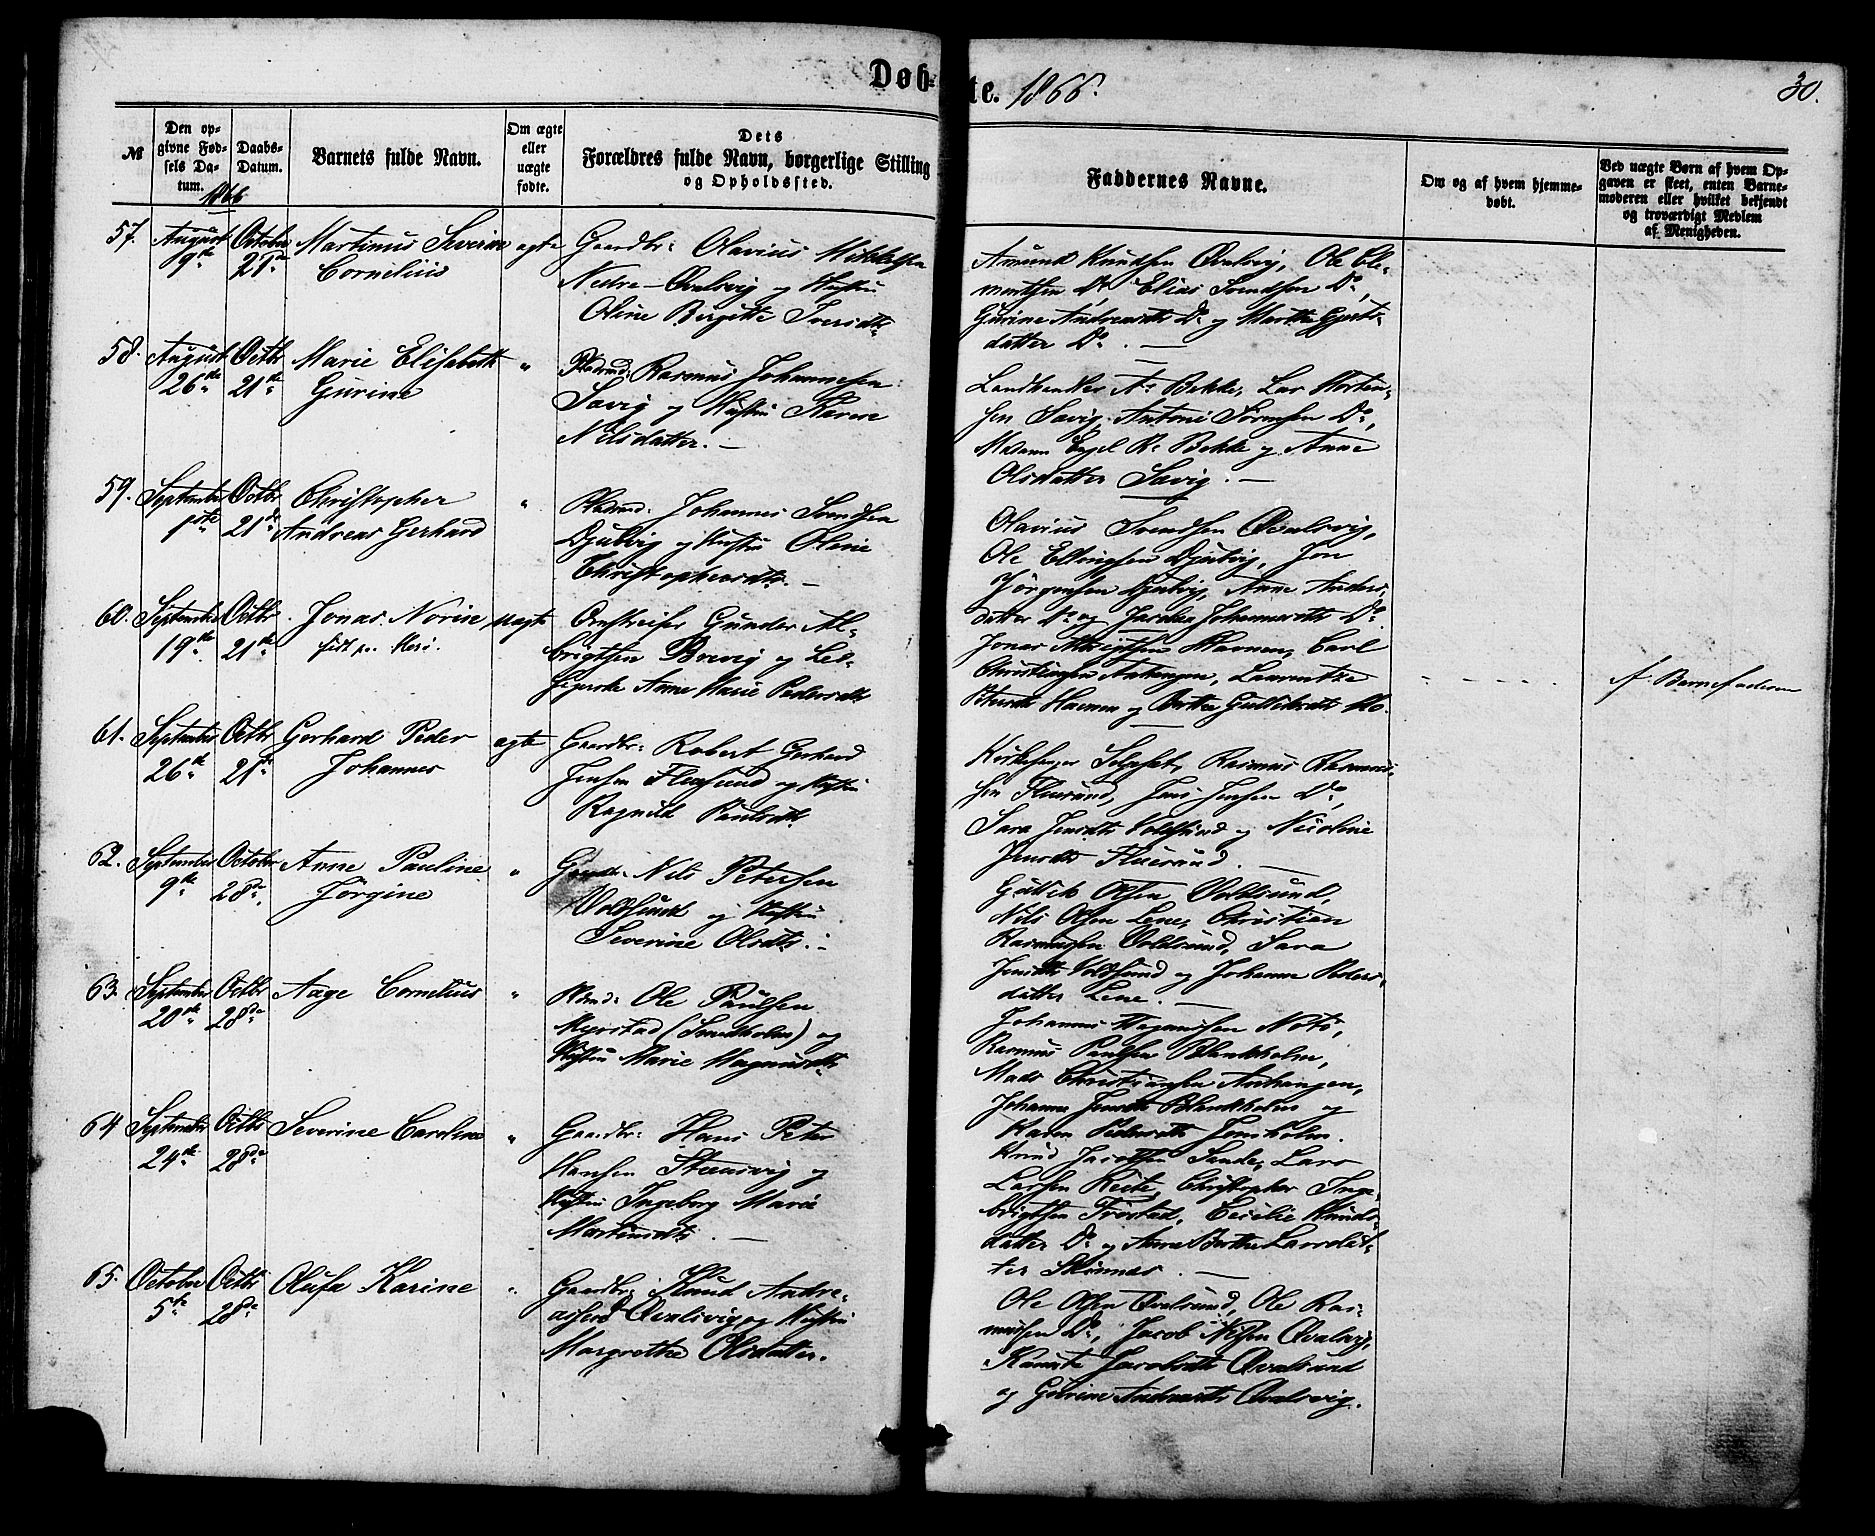 Døb-
te. 1866.
30.
№
Den op-
givne Fød-
sels Da-
tum.
1866
Daabs-
Datum.
Barnets fulde Navn.
Om ægte
eller
uægte
fødte.
Dets
Forældres fulde Navn, borgerlige Stilling
og Opholdssted.
Faddernes Navne.
Om og af hvem hjemme-
døbt.
Ved uægte Børn af hvem Op-
gaven er skeet, enten Barne-
moderen eller hvilket bekjendt
og troværdigt Medlem
af Menigheden.
57. August 9de October 21de Martinus Severin Cornelius ægte
Gaardbr: Olavius Mikkelsen
Nedre-Qvalsvig og Hustru
Oline Birgitte Iversdtr
Amund Knudsen Qvalsvig, Ole Cle-
mentsen Do, Elias Svendsen Do,
Gurine Andreasdtr Do og Marthe Gjerts-
datter Do. —
58. August 26de Octbr 21de Marie Elisabeth Gurine "
Rasmus Johannesen
Sævig og Hustru
Nilsdatter. —
Landhandler A. Bekke, Lars Mortin-
sen Sævig, Antoni Sørensen Do,
Madam Engel R. Bekke og Anne
Olsdatter Sævig. —
59. September 1ste Octbr 21de Christopher Andreas Gerhard "
Johannes Svendsen
Djubvig og Hustru Oline
Christophersdtr. —
Olavius Svendsen Qvalsvig,
Ole Ellingsen Djubvig, Jon
Jørgensen Djubvig, Anne Anders-
datter Do og Johannesdtr Do.
60. September 19de Octbr 21de Jonas Norin uægte
Gunder Al-
brigtsen Brevig og
Anne Marie Pedersdtr
Jonas Albrigtsen Havnen, Carl
Christiansen Aahangen, Laurentze
Havnen og Berthe
Af Barnefaderen
61. September 26de Octbr 21de Gerhard Peder Johannes ægte
Gaardbr: Robert Gerhard
Jensen Fluesund og Hustru
Ragnild Paulsdtr.
Kirkesanger Rasmus Rasmus-
sen Fluesund, Jens Jensen Do,
Sara Jensdtr Voldsund og Nicoline
Jensdtr Fluesund. —
62. September 9de October 28de Anne Pauline Jørgine "
Nils Petersen
Voldsund og Hustru
Severine Olsdtr. —
Gullik Olsen Voldsund,
Nils Olsen Lene, Christian
Rasmussen Voldsund, Sara
Jensdtr Voldsund og Johanne Peders-
datter Lene. —
63. September 20de Octbr 28de Aage Cornelius "
Ole Paulsen
Myrstad og
Hustru Marie Magnusdtr
Johannes Magnussen Notø,
Rasmus Paulsen Blankholm,
Mads Christiansen Aahangen,
Johanne Jensdtr Blankholm og
Karen Pedersdtr
64. September 24de Octbr 28de Severine Caroline "
Gaardbr: Hans Peter
Hansen og
Hustru Ingeborg Marie
Martinsdtr. —
Knud Jacobsen Sande, Lars
Larsen Keite, Christopher Inge-
brigtsen Frøstad, Cecilie Knuds-
datter Do og Anne Berthe Larsdat-
ter Skinnes. —
65. October 5te Octbr 28de Olufa Karine "
Gaardbr: Knud Andre-
assen Qvalsvig og Hustru
Margrethe Olsdatter.
Ole Olsen Qvalsund, Ole Ras-
mussen Do, Jacob Nilsen Qvalsvig,
Jacobsdtr Qvalsund
og Gurine Andreasdtr Qvalsvig.